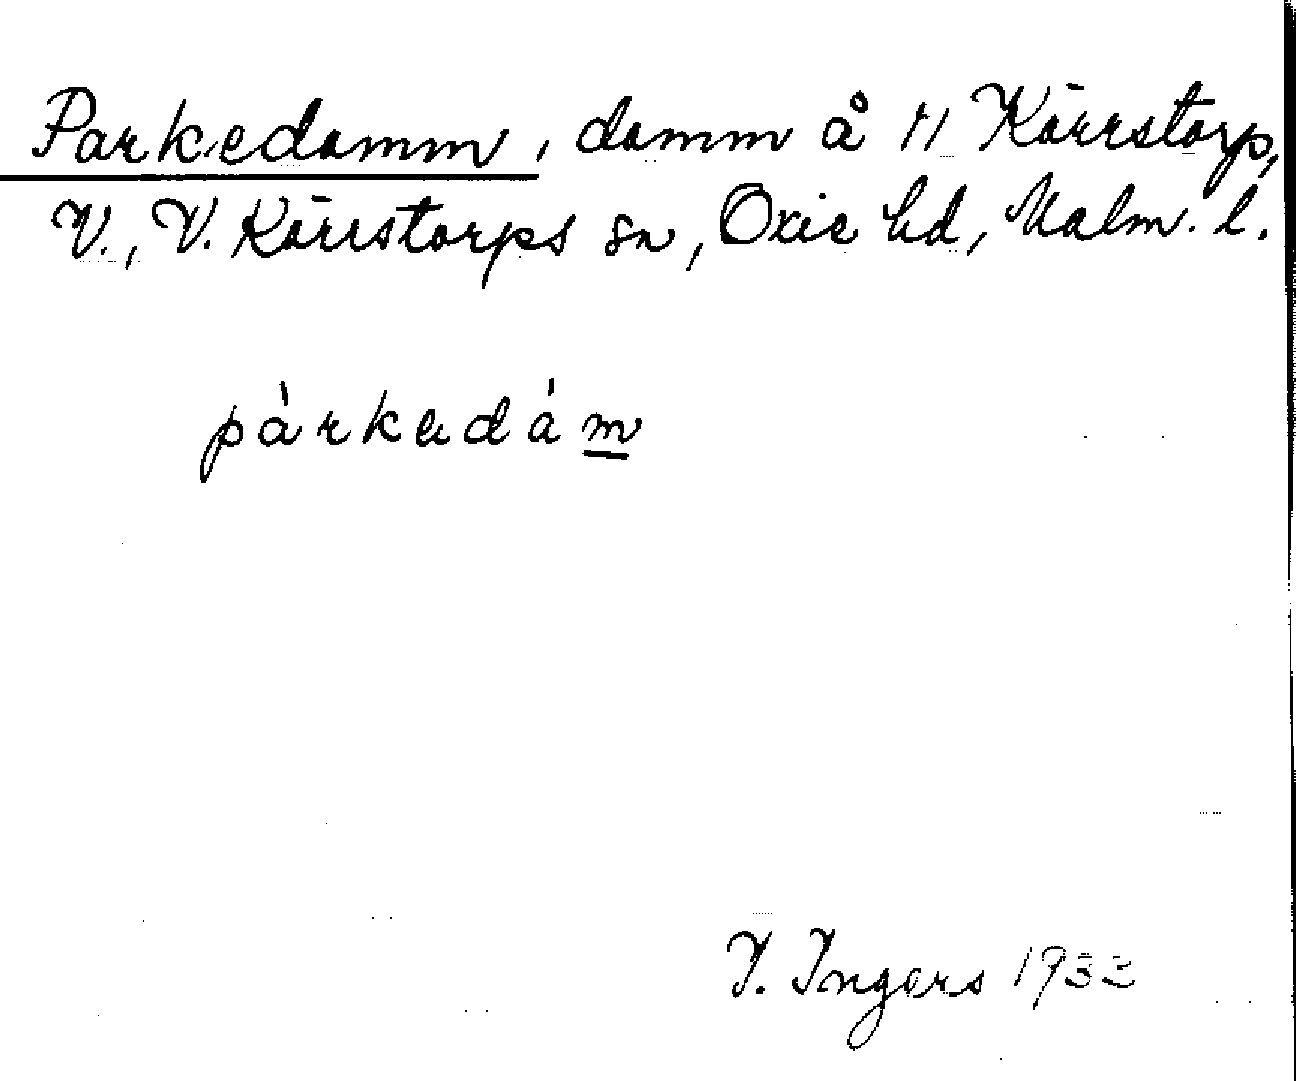 Parkedamm, damm å 11 Kärrstorp,
V., V. Kärrstorps sn, Oxie hd, Malm. l.
pàrkadám
I. Ingers 1932